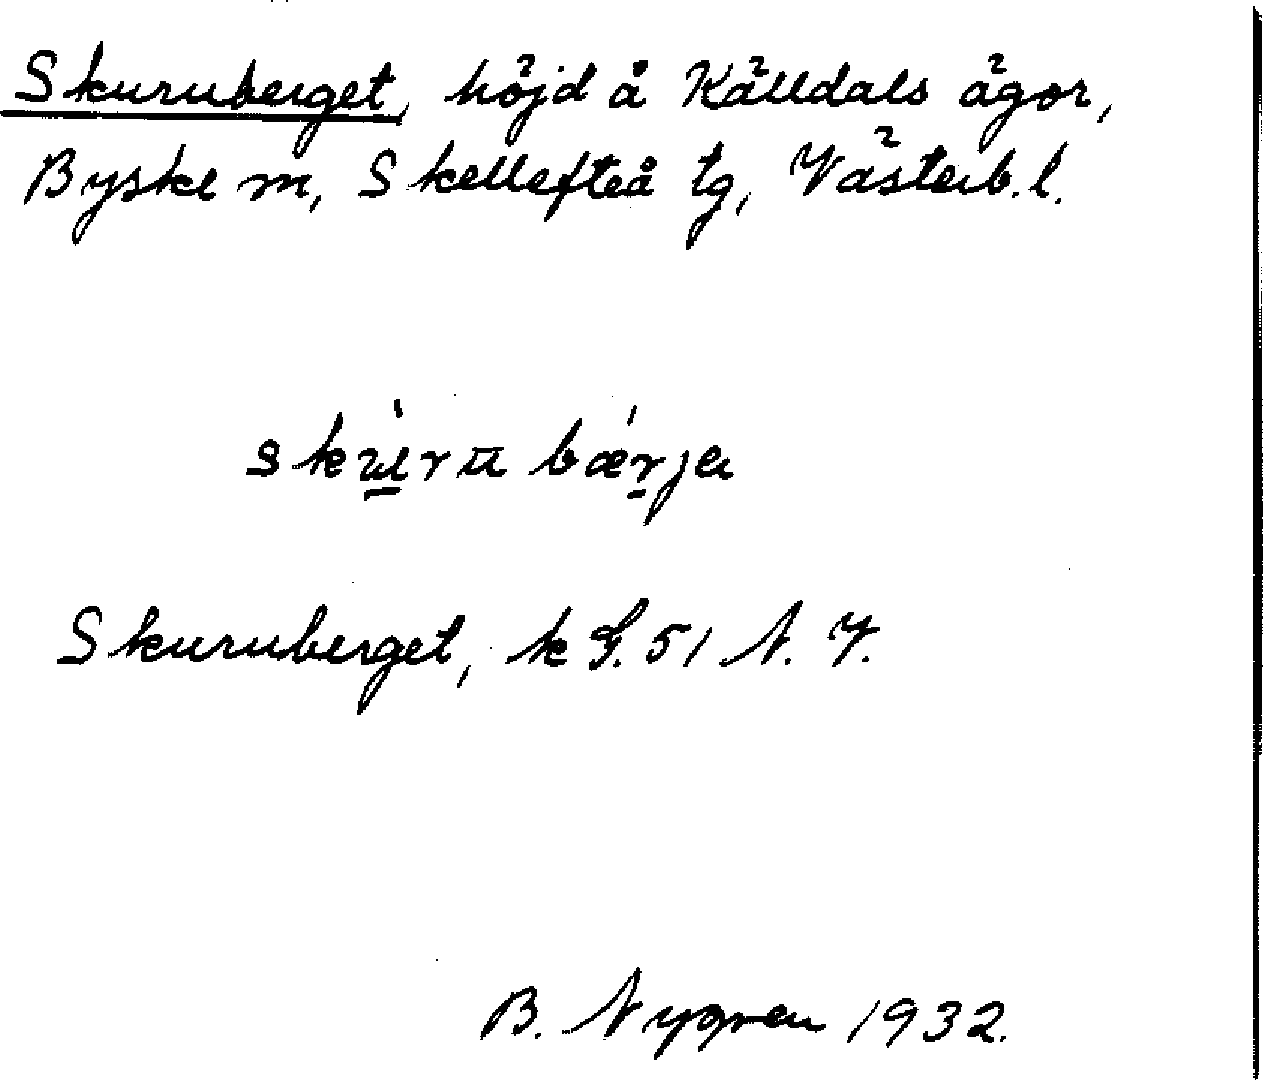 Skuruberget, höjd å Källdals ägor,
Byske sn, Skellefteå tg, Västerb. l.
skùru bǽrja
Skuruberget, k G. 51 N. V.
B. Nygren 1932.